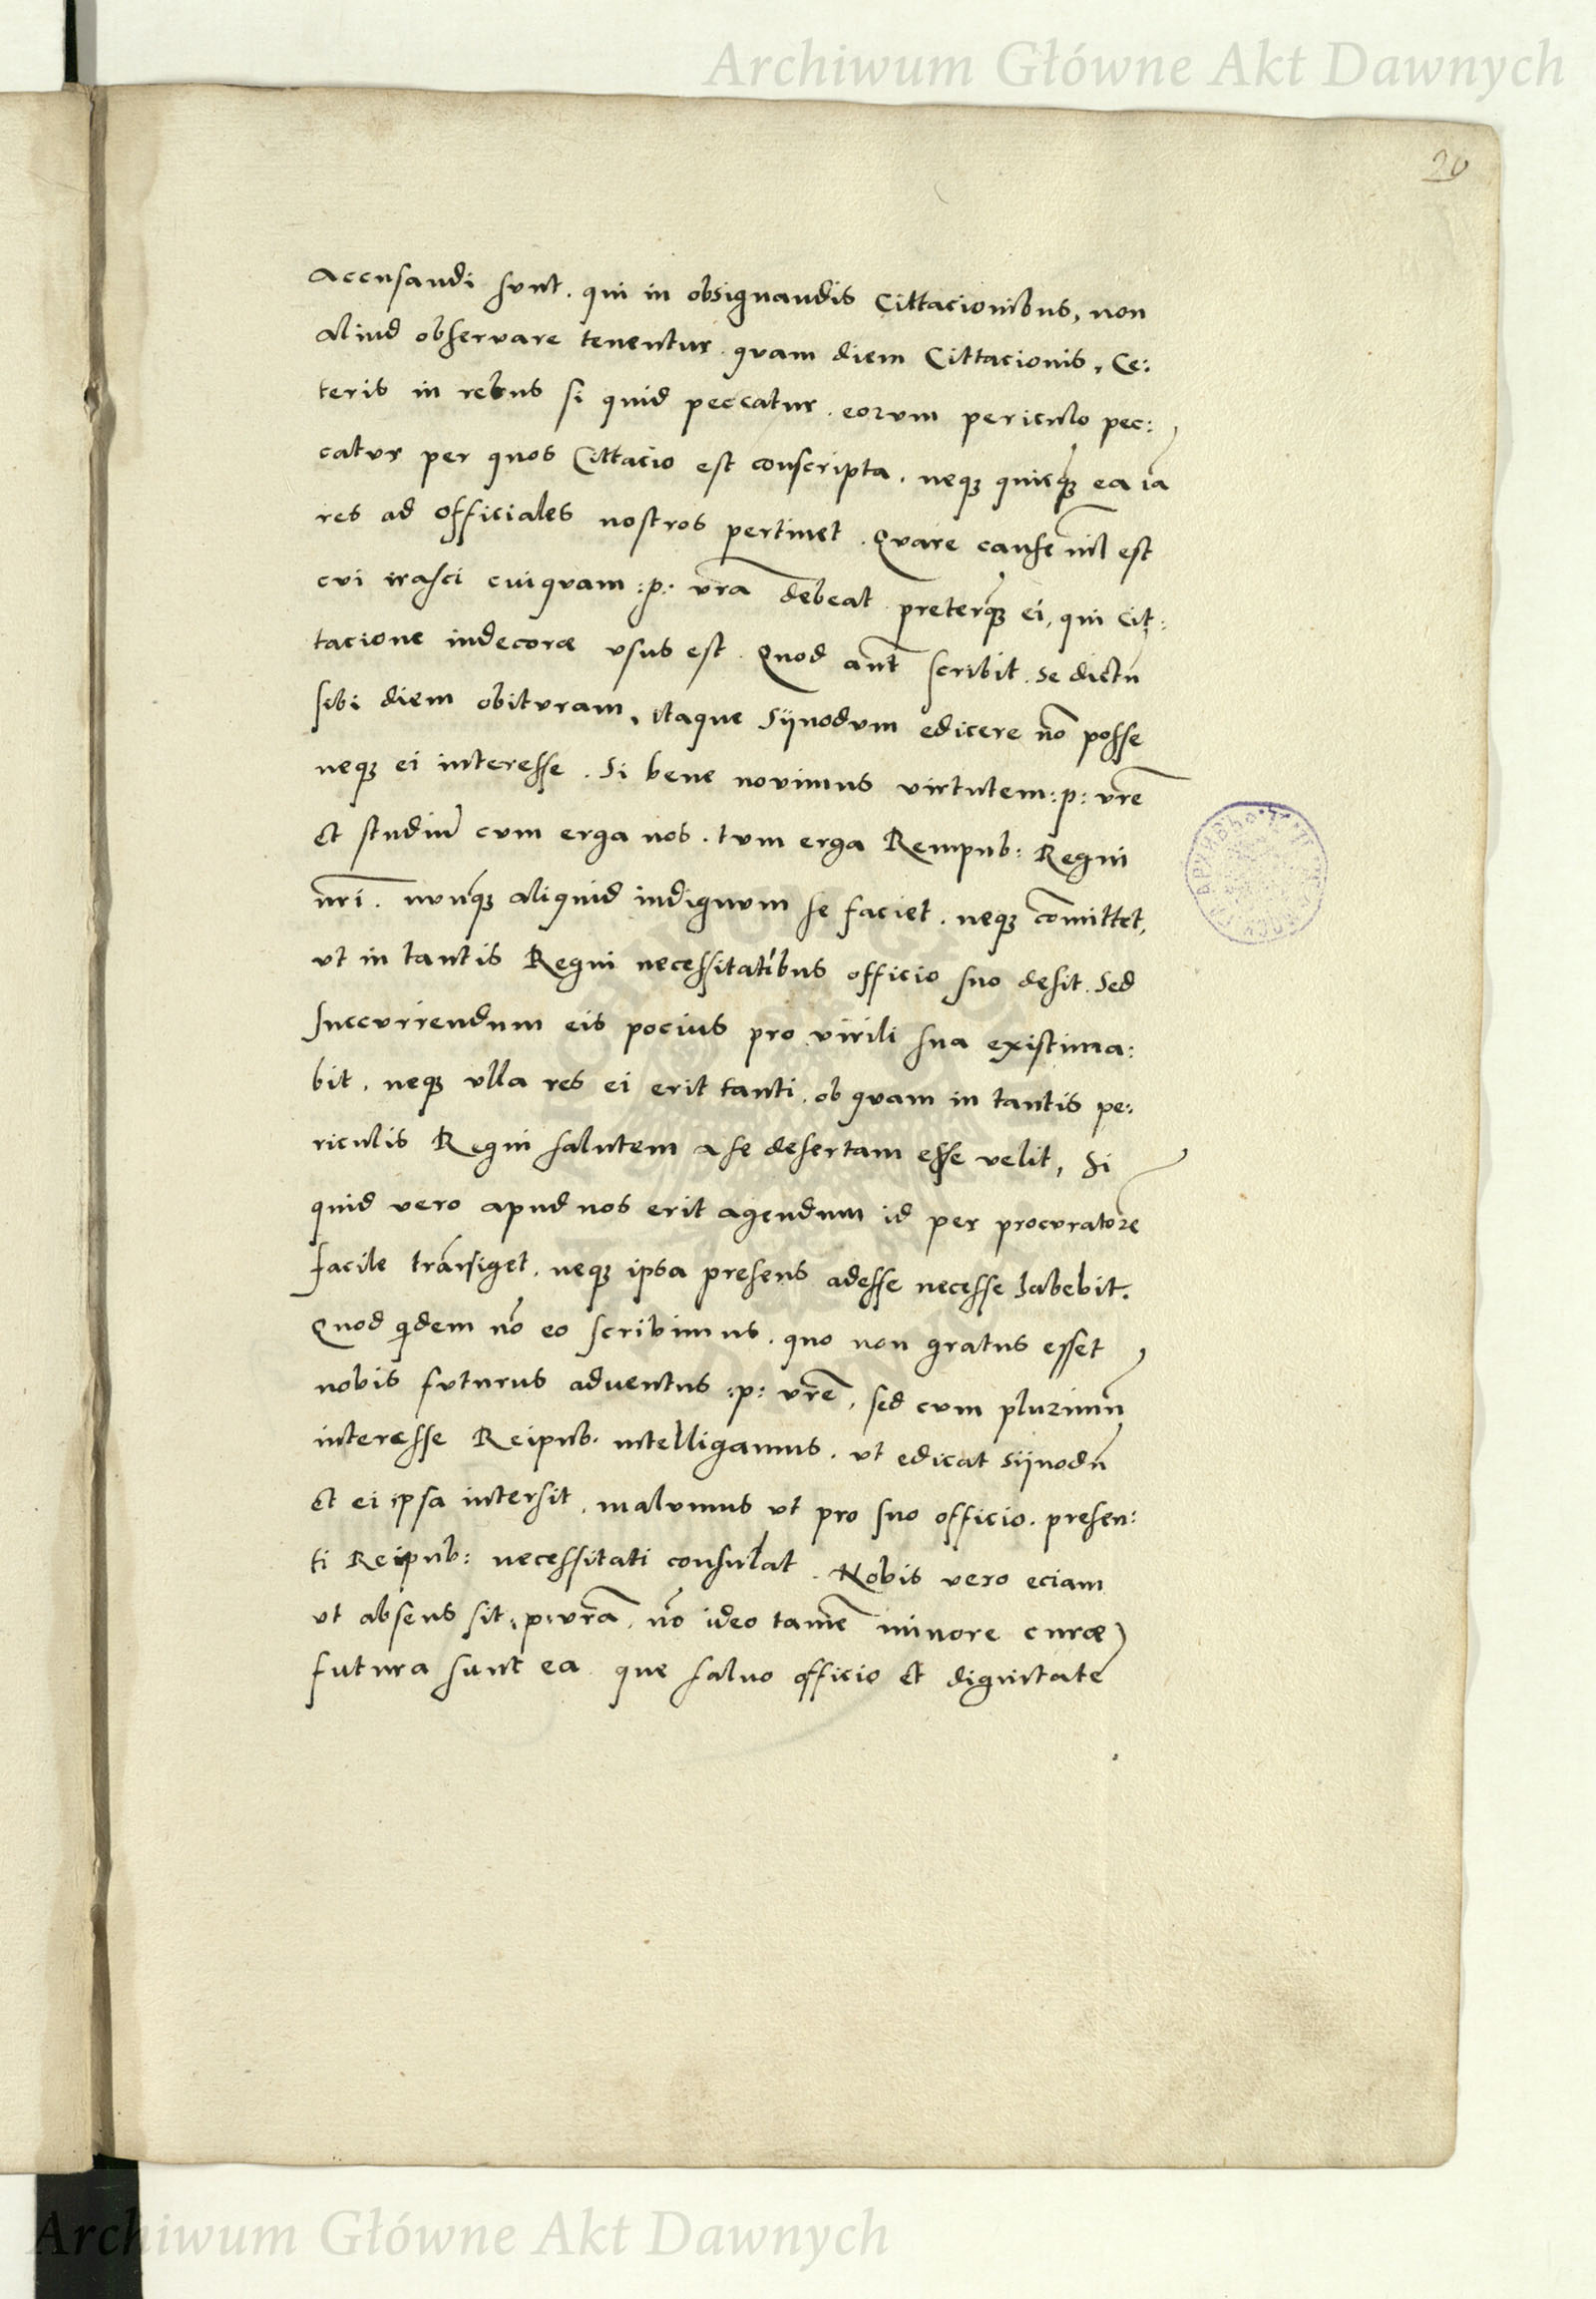 Archiwum Główne Akt Dawnych
20
Accusandi sunt. qui in obsignandis Cittacionibus, non
aliud observare tenentur. quam diem Cittacionis, Ce:
teris in rebus si quid peccatur. eorum periculo pec:
catur per quos Cittacio est conscripta. neqȝ quicq̃ȝ ea iã
res ad officiales nostros pertinet. Quare cause nĩl est
cui irasci cuiquam :p: vr̃a debeat. preterq̃ȝ ei, qui Cit:
tacione indecora usus est. Quod aũt scribit. se dictũ
sibi diem obituram, itaque Sÿnodum edicere nõ posse
neqȝ ei interesse. Si bene novimus virtutem :p: vr̃e
et studiũ cum erga nos. tum erga Rempub: Regni
nr̃i. nunq̃ȝ aliquid indignum se faciet. neqȝ cõmittet,
ut in tantis Regni necessitatibus officio suo desit. Sed
succurrendum eis pocius pro virili sua existima:
bit. neqȝ ulla res ei erit tanti. ob quam in tantis pe:
riculis Regni salutem a se desertam esse velit, Si
quid vero apud nos erit agendum id per procuratorẽ
facile trãnsiget. neqȝ ipsa presens adesse necesse habebit.
Quod qidem nõ eo scribimus. quo non gratus esset
nobis futurus adventus :p: vr̃e, sed cum plurimũ
interesse Reipub. intelligamus. ut edicat Sÿnodũ
et ei ipsa intersit. malumus ut pro suo officio. presen:
ti Reipub: necessitati consulat. Nobis vero eciam
ut absens sit :p: vr̃a. nõ ideo tamẽ minore curæ
futura sunt ea que salvo officio et dignitate
Archiwum Główne Akt Dawnych